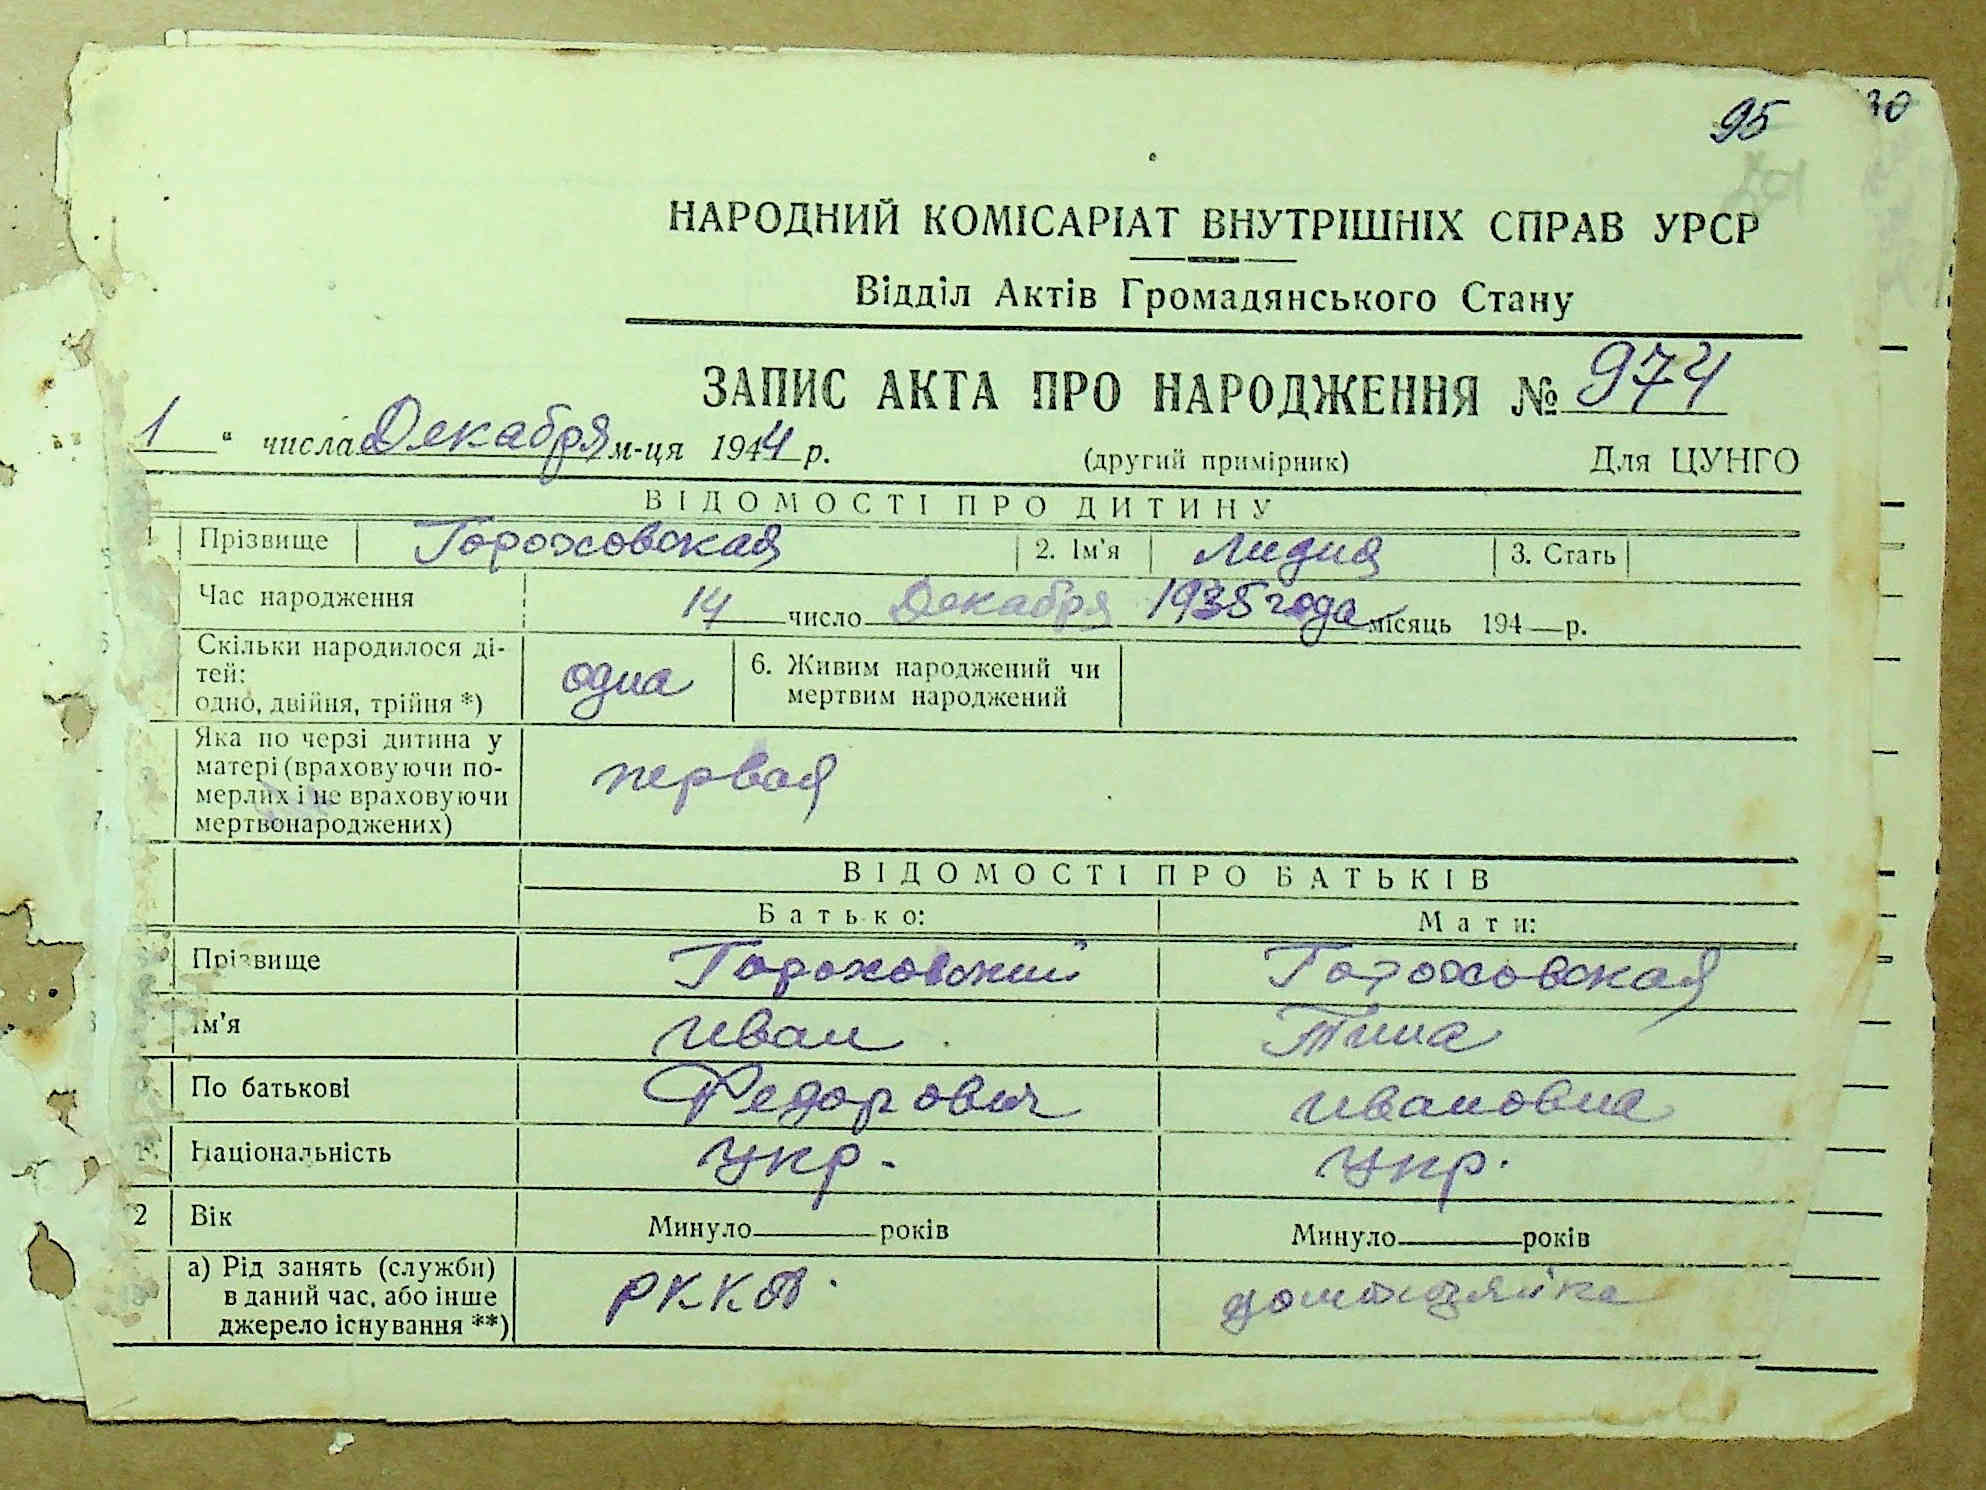 95
30
НАРОДНИЙ КОМІСАРІАТ ВНУТРІШНІХ СПРАВ УРСР
Відділ Актів Громадянського Стану
ЗАПИС АКТА ПРО НАРОДЖЕННЯ № 974
1 " числа Декабря м-ця 1944 р. (другий примірник) Для ЦУНГО
ВІДОМОСТІ ПРО ДИТИНУ
1 Прізвище Гороховская 2. Ім'я Лидия 3. Стать
Час народження 14 число Декабря 1935 года місяць 194 р.
Скільки народилося ді-
тей:
одно, двійня, трійня *) одна 6. Живим народжений чи
мертвим народжений
Яка по черзі дитина у
матері (враховуючи по-
мерлих і не враховуючи
мертвонароджених) первая
ВІДОМОСТІ ПРО БАТЬКІВ
Батько: Мати:
Прізвище Гороховский Гороховская
Ім'я Иван
По батькові Федорович Ивановна
Національність укр. укр.
2 Вік Минуло років Минуло років
а) Рід занять (служби)
в даний час, або інше
джерело існування **) РККА домохозяйка